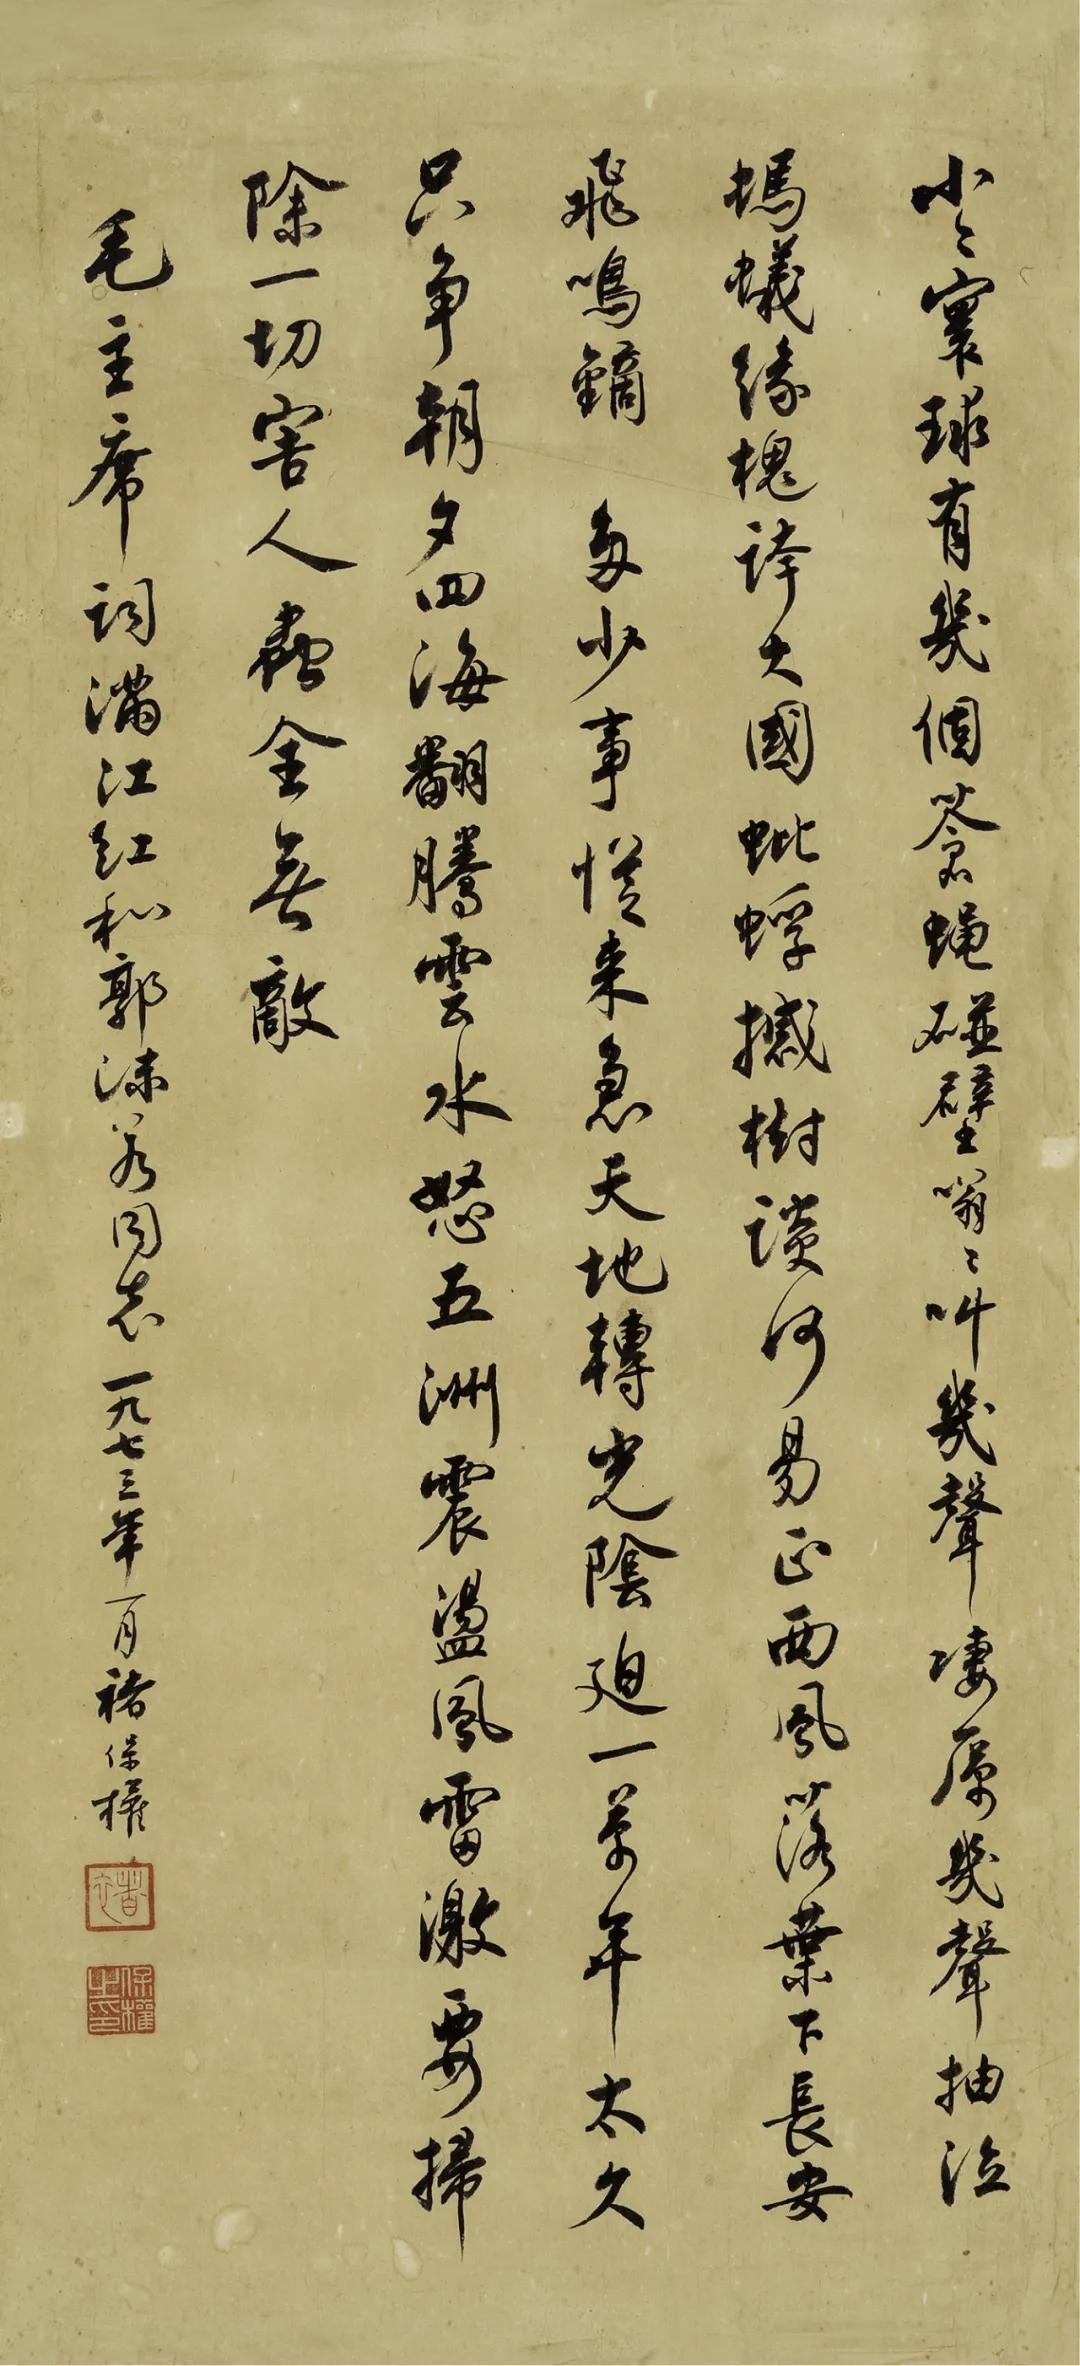 小々寰球有幾個蒼蝇碰壁嗡々叫幾聲凄厲幾聲抽泣
螞蟻緣槐誇大國蚍蜉撼樹談何易正西風落葉下長安
飛鳴鏑 多少事從来急天地轉光陰迫一萬年太久
只争朝夕四海翻騰雲水怒五洲震盪風雷激要掃
除一切害人蟲全無敵
毛主席詞滿江红和郭沫若同志 一九七三年一月褚保權
褚
保權之印